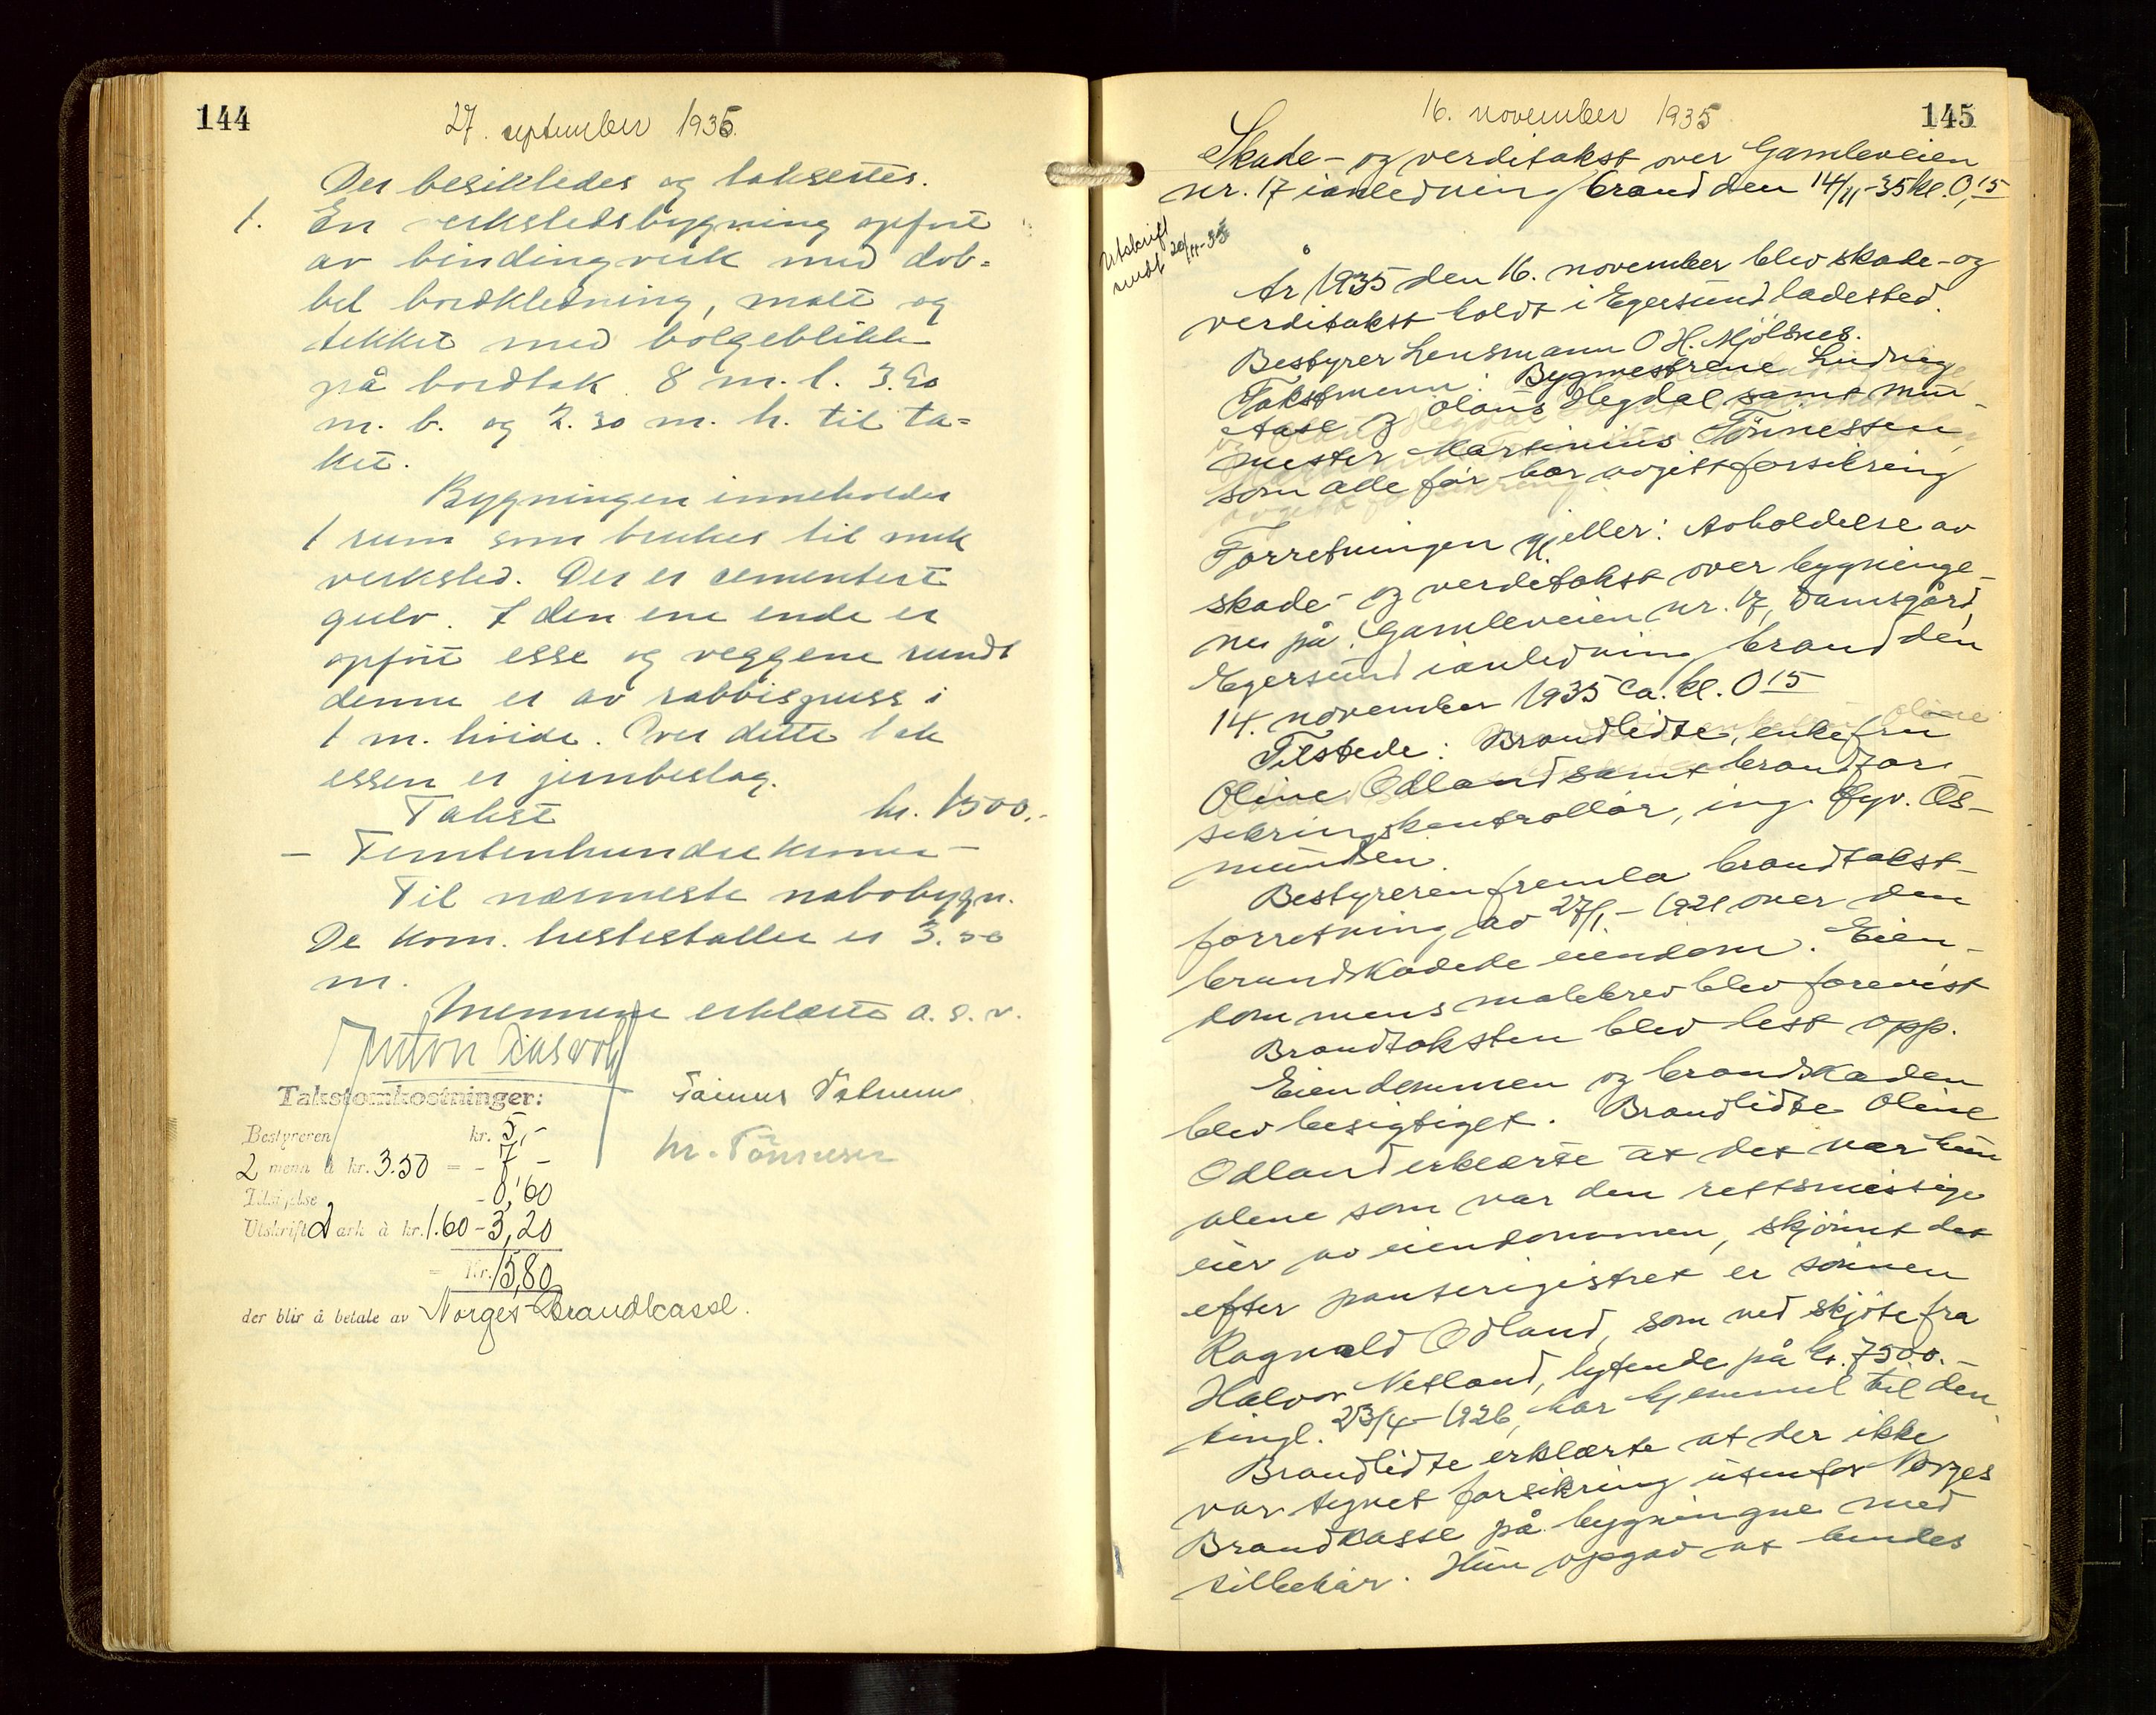 144
27. september 1935.
Der besiktedes og taksertes.
1. En verkstedsbygning opført
av bindingverk med dob=
bel bordkledning, malt og
tekket med bølgeblikk
på bordtak 8 m. l. 3.20
m. b. og 2.30 m. h. til ta=
ket.
Bygningen inneholder
1 rum som brukes til mek
verksted. Der er cementert
gulv. I den ene ende er
opført esse og veggene rundt
denne er av rabbispuss i
1 m. høide. Over dette bak
essen er jernbeslag.
Takst kr. 1500.-
- Femtenhundrekroner -
Til nærmeste nabobygn.
De kom. hestestaller er 3.50
m.
Mennene erklærte a. s. v.
Anton
Takstomkostninger:
Bestyreren kr. 5,-
2 menn à kr. 3.50 = - 7 -
- 0,60
Utskrift 2 ark à kr. 1.60 - 3,20
= Kr. 15,80
der blir å betale av Norges Brandkasse.
M. Tönnesen
145
16. november 1935
Skade- og verditakst over Gamleveien
nr. 17 i anledning brand den 14/11-35 kl. 0,15
Utskrift
sendt 20/11-35
År 1935 den 16. november blev skade- og
verditakst holdt i Egersund ladested.
Bestyrer Lensmann O H. Mjölsnes.
Takstmenn: Bygmestrene Ludvig
Aase og Olaus Hegdal samt mur-
mester Martinius Tönnessen
som alle før har avgitt forsikring
Forretningen gjeller: Avholdelse av
skade- og verditakst over bygninge-
ne på Gamleveien nr. 17, Damsgård,
Egersund i anledning brand den
14. november 1935 ca. kl. 0 15
Tilstede: Brandlidte, enkefru
Oline Odland samt brandfor-
sikringskontrollør, ing. Eyv. Os-
mundsen.
Bestyreren fremla brandtakst-
forretning av 27/1-1921 over den
brandskadede eiendom. Eien-
dommens målebrev blev forevist
Brandtaksten blev lest opp.
Eiendommen og brandskaden
blev besigtiget. Brandlidte Oline
Odland erklærte at det var hun
alene som var den rettsmessige
eier av eiendommen, skjönt det
efter panteregistret er sönnen
Ragnvald Odland, som ved skjöte fra
Halvor Netland, lydende på kr. 7500.-
tingl. 23/4-1926, har hjemmel til den.
Brandlidte erklærte at der ikke
var tegnet forsikring utenfor Norges
Brandkasse på bygningne med
tilbehör. Hun opgav at hendes